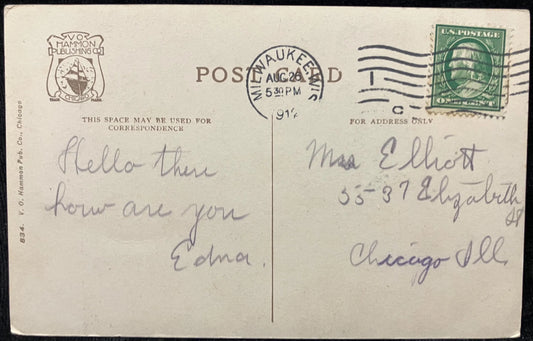 V O
HAMMON
PUBLISHING CO.
CHICAGO
TRADE MARK
POST CARD
MILWAUKEE, WIS
AUG 26
5 30 PM
191
1
C
U.S. POSTAGE
ONE CENT
THIS SPACE MAY BE USED FOR
CORRESPONDENCE
FOR ADDRESS ONLY
834. V. O. Hammon Pub. Co., Chicago
Hello there
how are you
Edna.
Elliott
55-37 Elizabeth
St
Chicago Ill